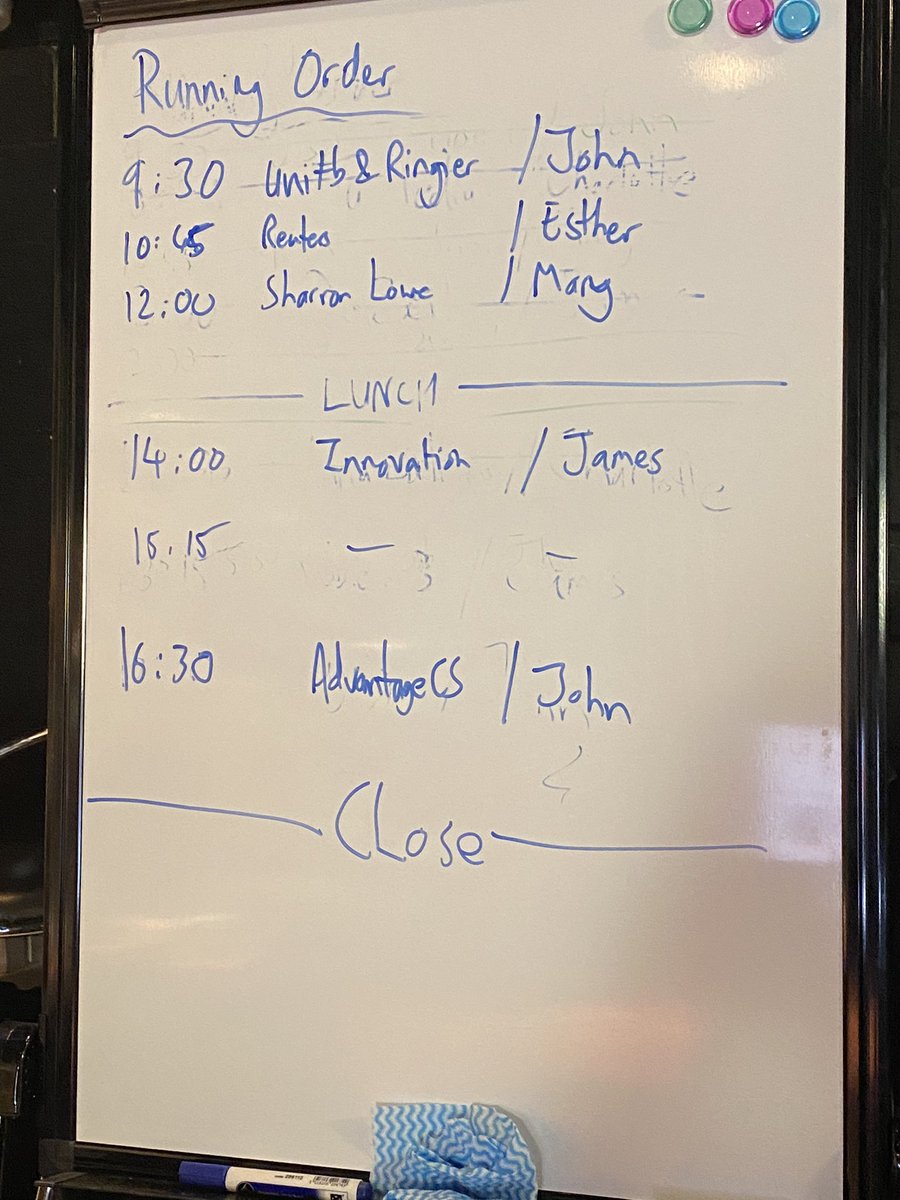 Running Order
9:30 Unitb & Ringier / John
10:45 Renteo / Esther
12:00 Sharron Lowe / Mary
LUNCH
14:00 Innovation / James
15:15 — —
16:30 AdvantageCS / John
CLose